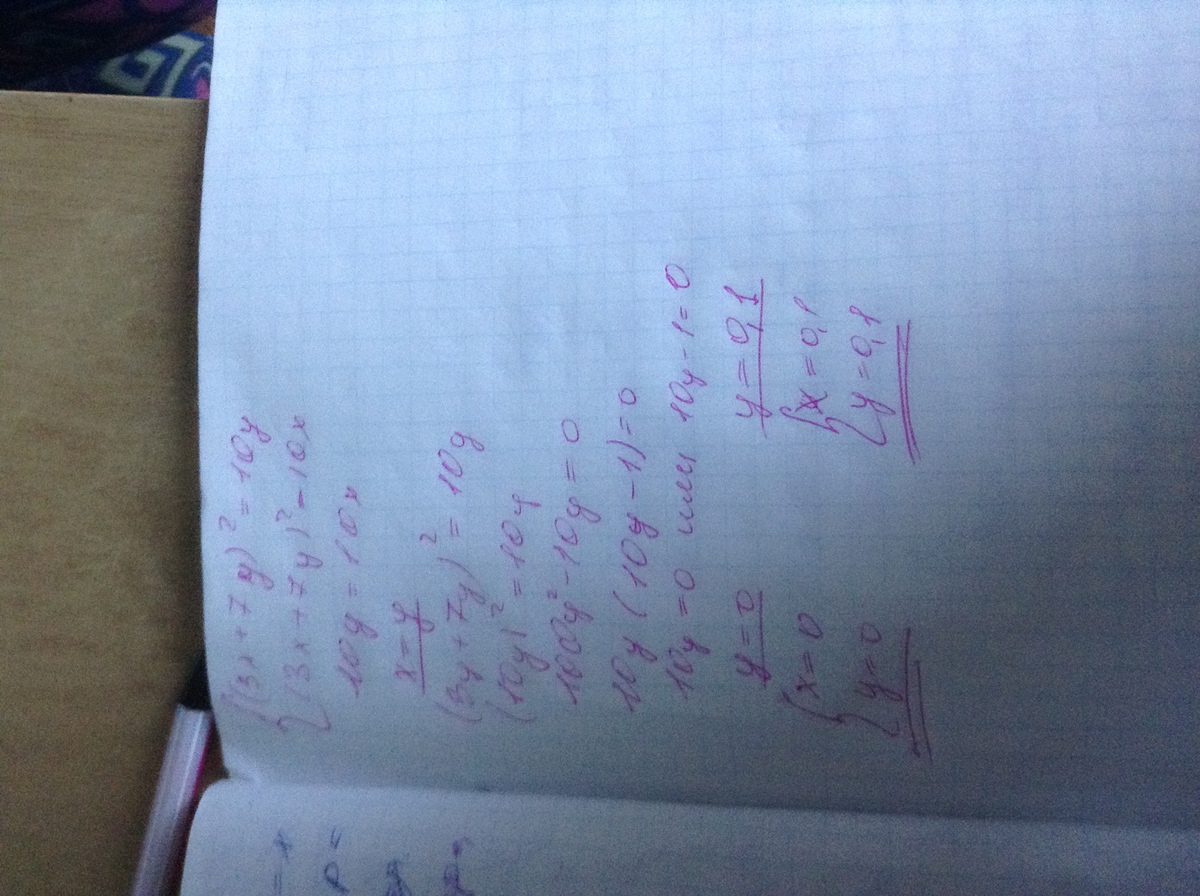 {(3x+7y)²=10y
{(3x+7y)²=10x
10y=10x
x=y
(3y+7y)²=10y
(10y)²=10y
100y²-10y=0
10y(10y-1)=0
10y=0 или 10y-1=0
y=0 y=0,1
{x=0 {x=0,1
{y=0 {y=0,1